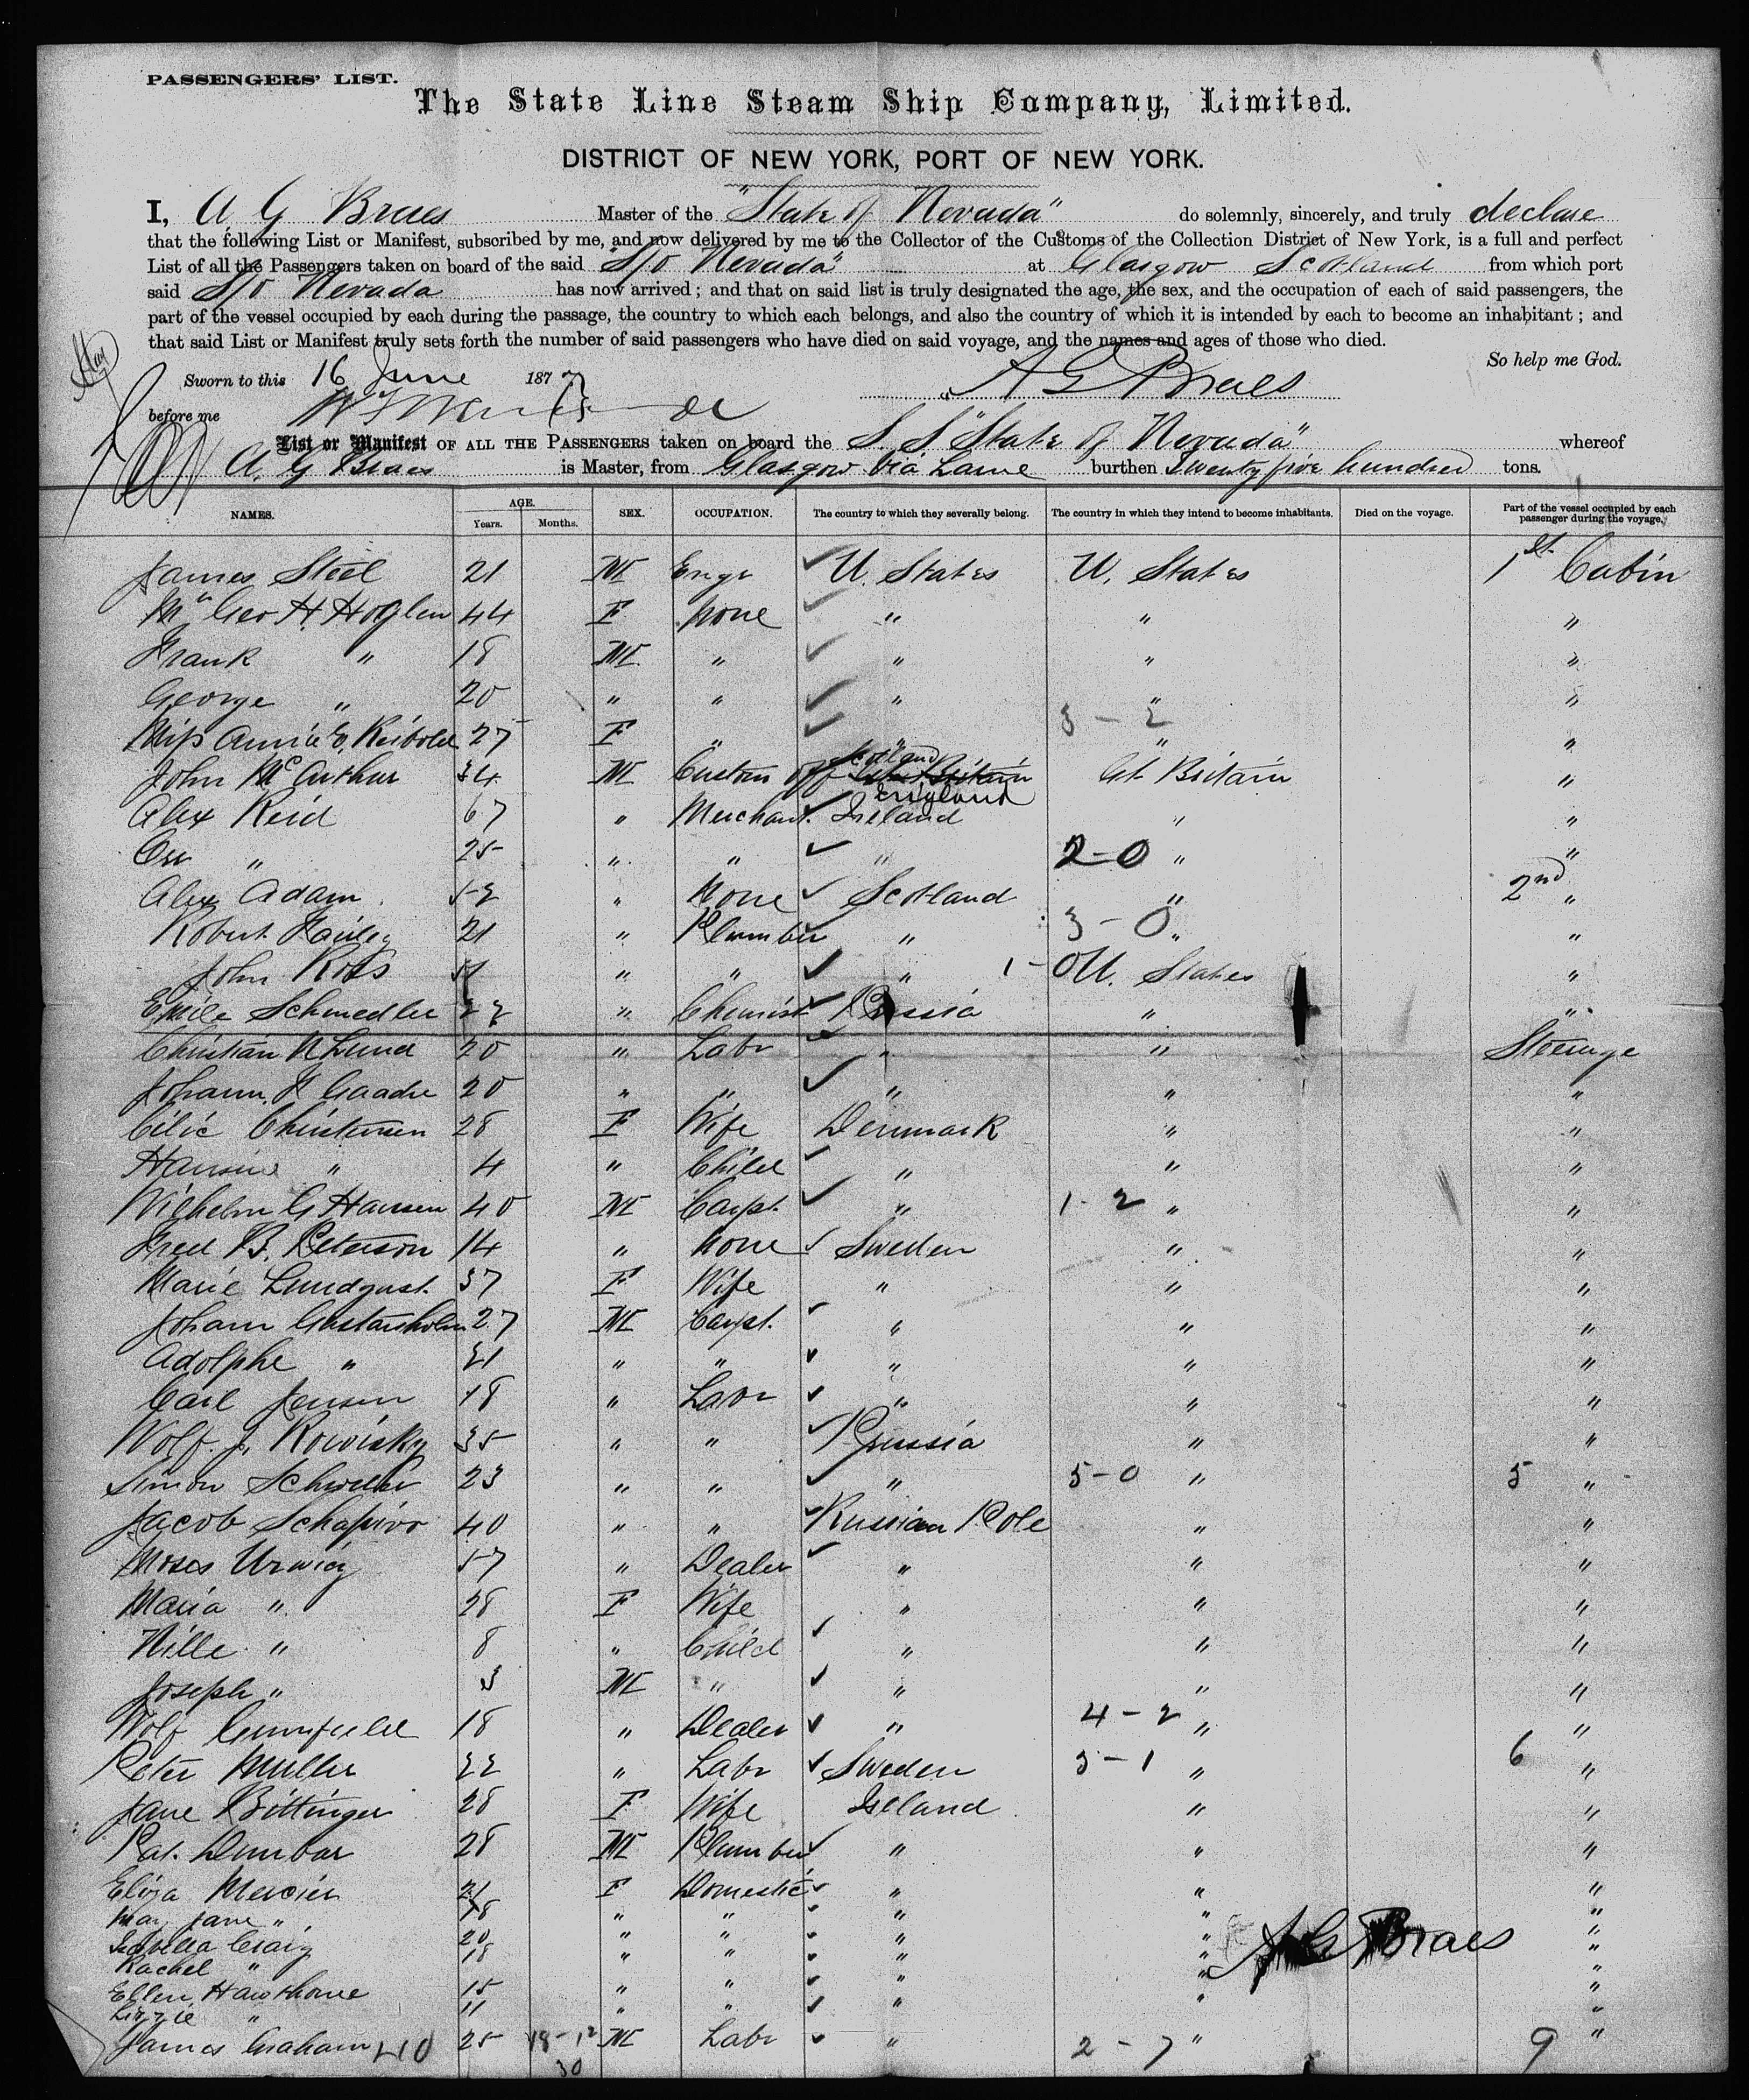 PASSENGERS' LIST.
The State Line Steam Ship Company, Limited.
DISTRICT OF NEW YORK, PORT OF NEW YORK.
I, A G Braes Master of the "State of Nevada" do solemnly, sincerely, and truly declare
that the following List or Manifest, subscribed by me, and now delivered by me to the Collector of the Customs of the Collection District of New York, is a full and perfect
List of all the Passengers taken on board of the said S/o Nevada" at Glasgow Scotland from which port
said S/o Nevada has now arrived; and that on said list is truly designated the age, the sex, and the occupation of each of said passengers, the
part of the vessel occupied by each during the passage, the country to which each belongs, and also the country of which it is intended by each to become an inhabitant; and
that said List or Manifest truly sets forth the number of said passengers who have died on said voyage, and the names and ages of those who died.
So help me God.
Sworn to this 16 June 1877 A G Braes
before me
List or Manifest OF ALL THE PASSENGERS taken on board the S. S "State of Nevada" whereof
A. G Braes is Master, from Glasgow via Larne burthen Twenty five hundred tons.
NAMES. AGE. Years. Months. SEX. OCCUPATION. The country to which they severally belong. The country in which they intend to become inhabitants. Died on the voyage. Part of the vessel occupied by each passenger during the voyage.
James Steel 21 M Engr U. States U. States 1st Cabin
Mrs Geo H. 44 F None " " "
Frank " 18 M " " " "
George " 20 " " " " "
Miss Annie E. 27 F " " 3 - 2 " "
John McArthur 34 M Custom off Scotland Gt. Britain "
Alex Reid 67 " Merchant England Ireland " "
Orr " 25 " " " 2-0 " "
Alex Adam 52 " None Scotland " 2nd "
Robert 21 " Plumber " 3 - 0 " "
John Ross " " " 1 - 0 U. States "
Emile Schmedler " Chemist Prussia " "
Christian N Lund 20 " Labr " " Steerage
Johann 20 " " " " "
Christensen 28 F Wife Denmark " "
Hansine " 4 " Child " " "
Wilhelm G Hansen 40 M Carpt. " 1-2 " "
Fred B. Peterson 14 " None Sweden " "
Marie Lundqust. 37 F Wife " " "
Johann Gustavsholm 27 M Carpt. " " "
Adolphe " 21 " " " " "
Carl Jensen 18 " Labr " " "
Wolf. J. 35 " " Prussia " "
Simon 23 " " " 5-0 " 5 "
Jacob Schapiro 40 " " Russian Pole " "
Moses 57 " Dealer " " "
Maria " 28 F Wife " " "
Nille " 8 " Child " " "
Joseph " 3 M " " " "
Wolf 18 " Dealer " 4 - 2 " "
Peter Muller 22 " Labr Sweden 3 - 1 " 6 "
Jane Bittinger 28 F Wife Ireland " "
Pat. Dunbar 28 M Plumber " " "
Eliza Mercier 21 F Domestic " " "
Mary Jane " 18 " " " " "
Isabella Craig 20 " " " " "
A G Braes
Rachel " 18 " " " " "
Ellen Hawthorne 15 " " " " "
Lizzie " 11 " " " " "
James Graham 40 25 18-12 M Labr " 2 - 7 " 9 "
30